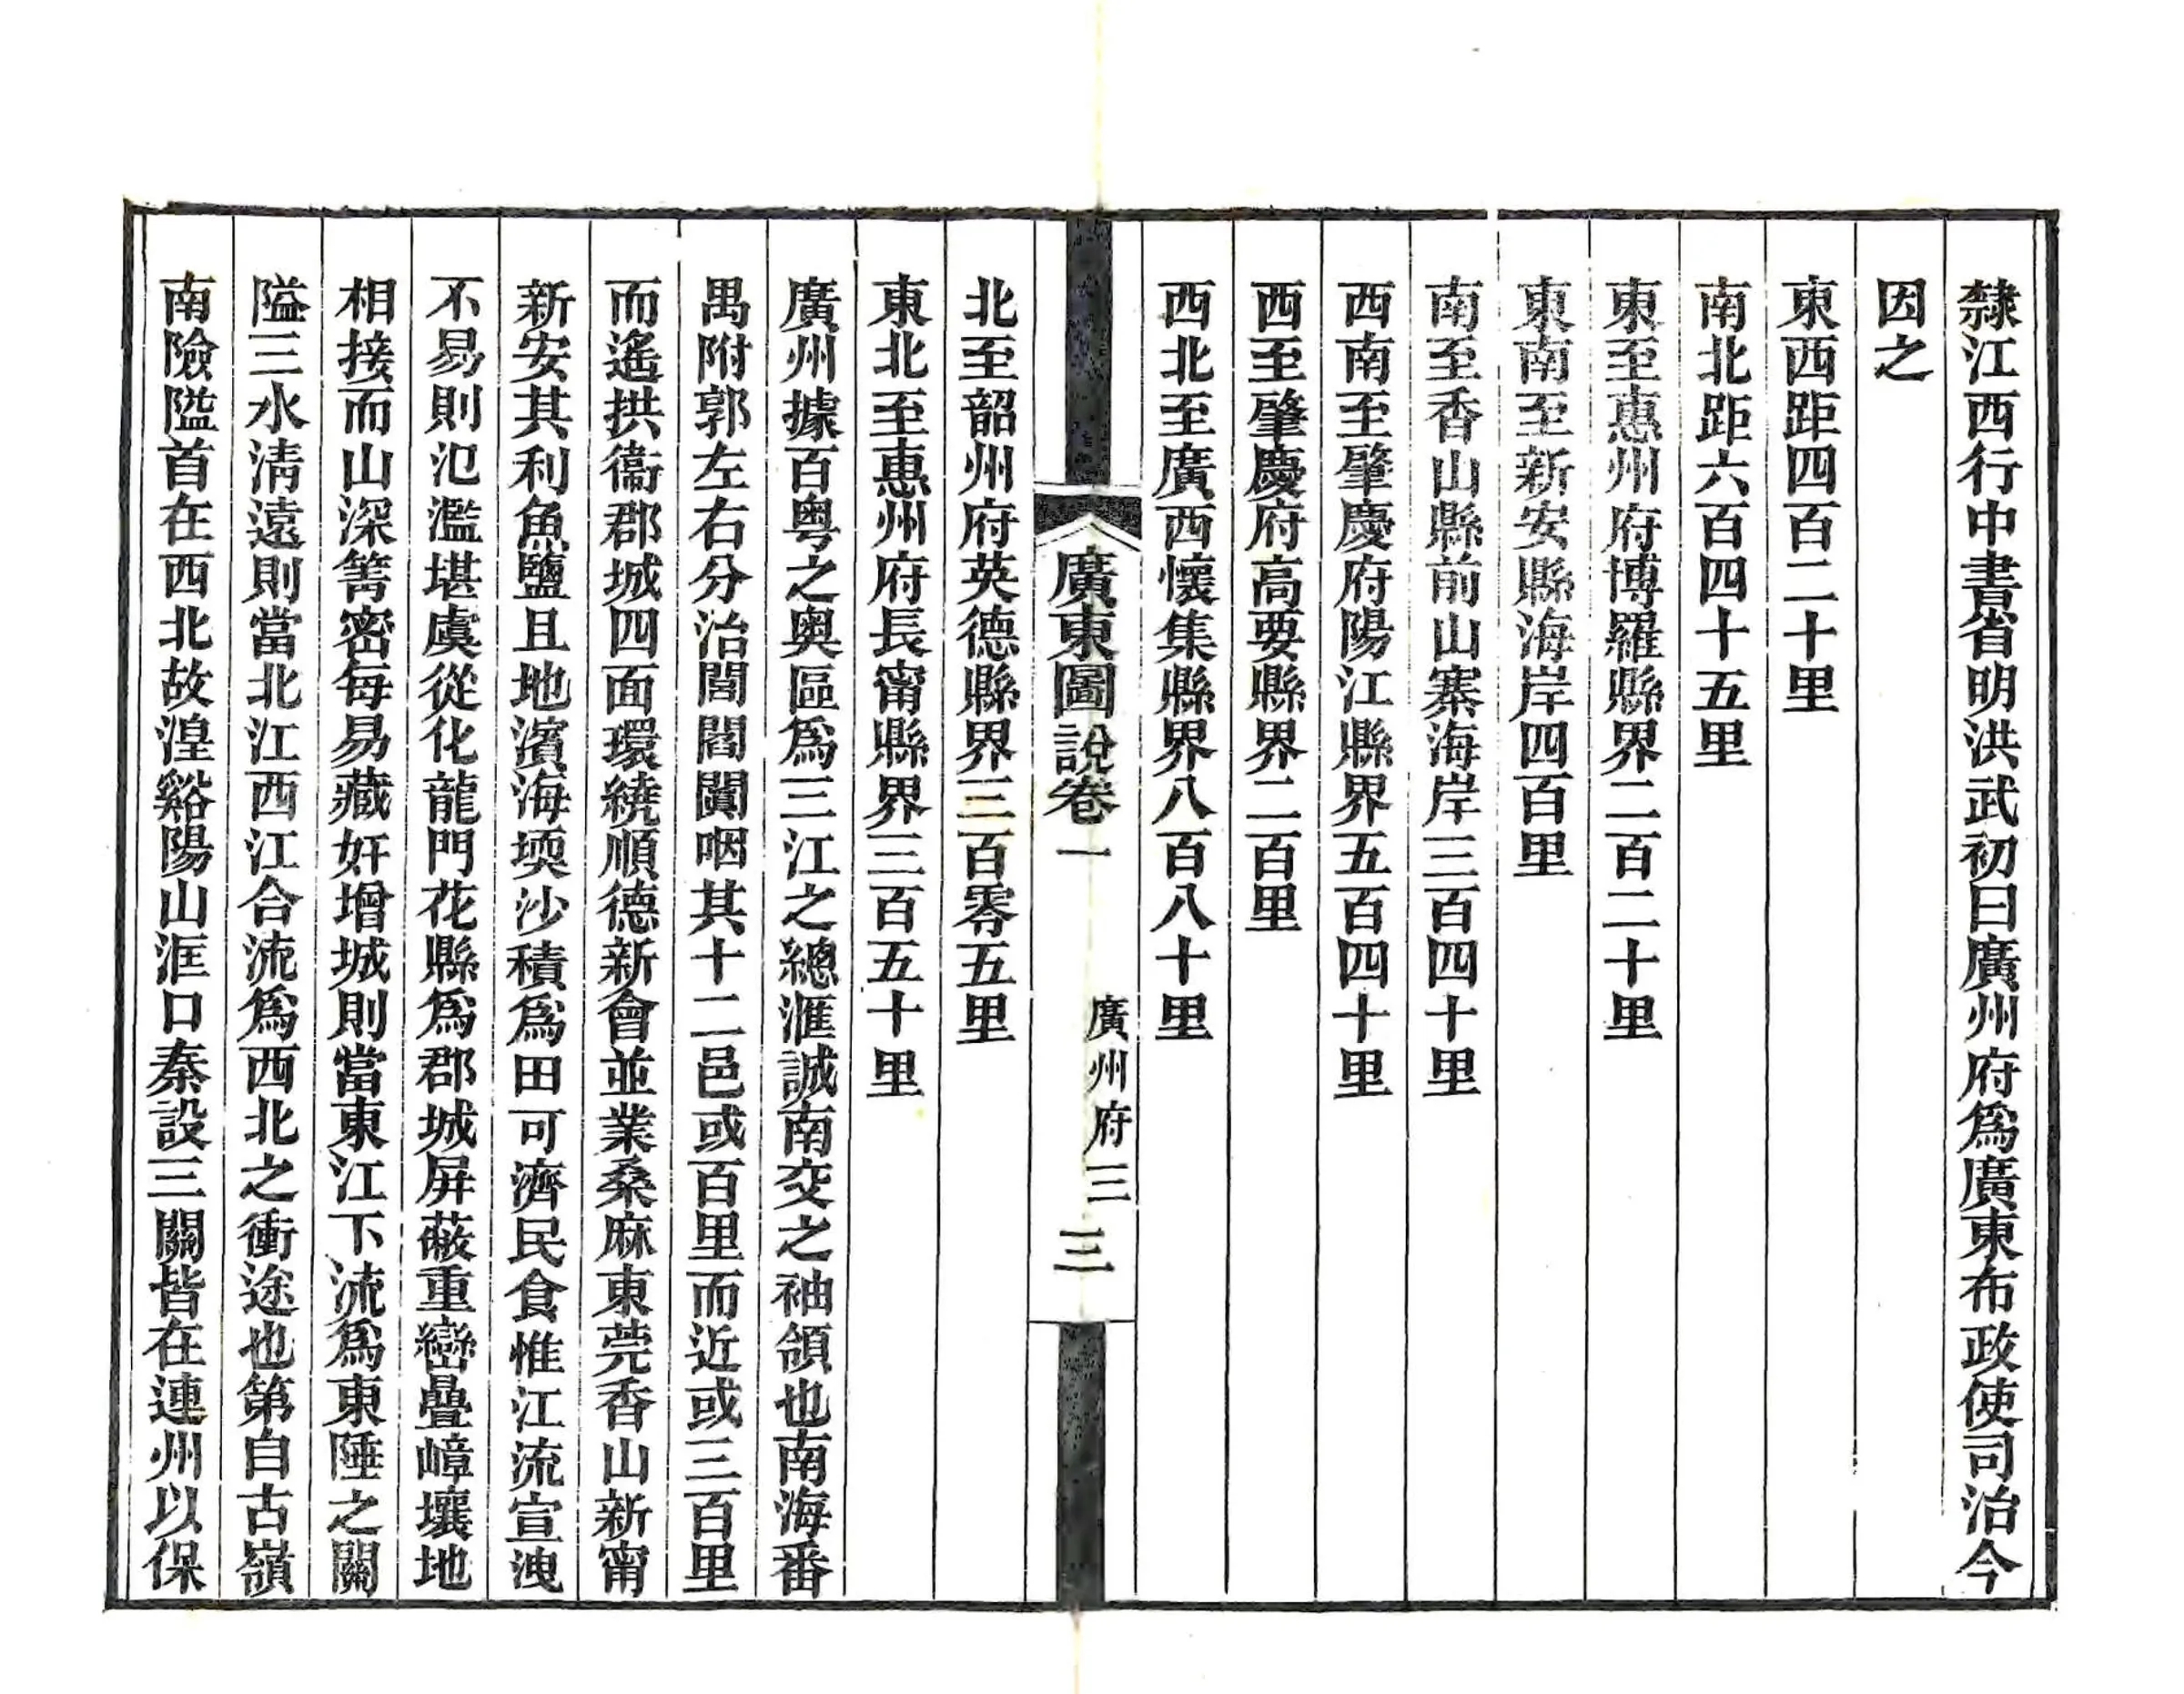 隸江西行中書省明洪武初曰廣州府爲廣東布政使司治今
因之
東西距四百二十里
南北距六百四十五里
東至惠州府博羅縣界二百二十里
東南至新安縣海岸四百里
南至香山縣前山寨海岸三百四十里
西南至肇慶府陽江縣界五百四十里
西至肇慶府高要縣界二百里
西北至廣西懷集縣界八百八十里
廣東圖說卷一 廣州府三 三
北至韶州府英德縣界三百零五里
東北至惠州府長甯縣界三百五十里
廣州據百粤之奧區爲三江之總滙誠南交之袖領也南海番
禺附郭左右分治閭閻闐咽其十二邑或百里而近或三百里
而遙拱衞郡城四面環繞順德新會並業桑麻東莞香山新甯
新安其利魚鹽且地濱海堧沙積爲田可濟民食惟江流宣洩
不易則氾濫堪虞從化龍門花縣爲郡城屏蔽重巒疊嶂壤地
相接而山深箐密每易藏奸增城則當東江下流爲東陲之關
隘三水清遠則當北江西江合流爲西北之衝途也第自古嶺
南險隘首在西北故湟谿陽山洭口秦設三關皆在連州以保